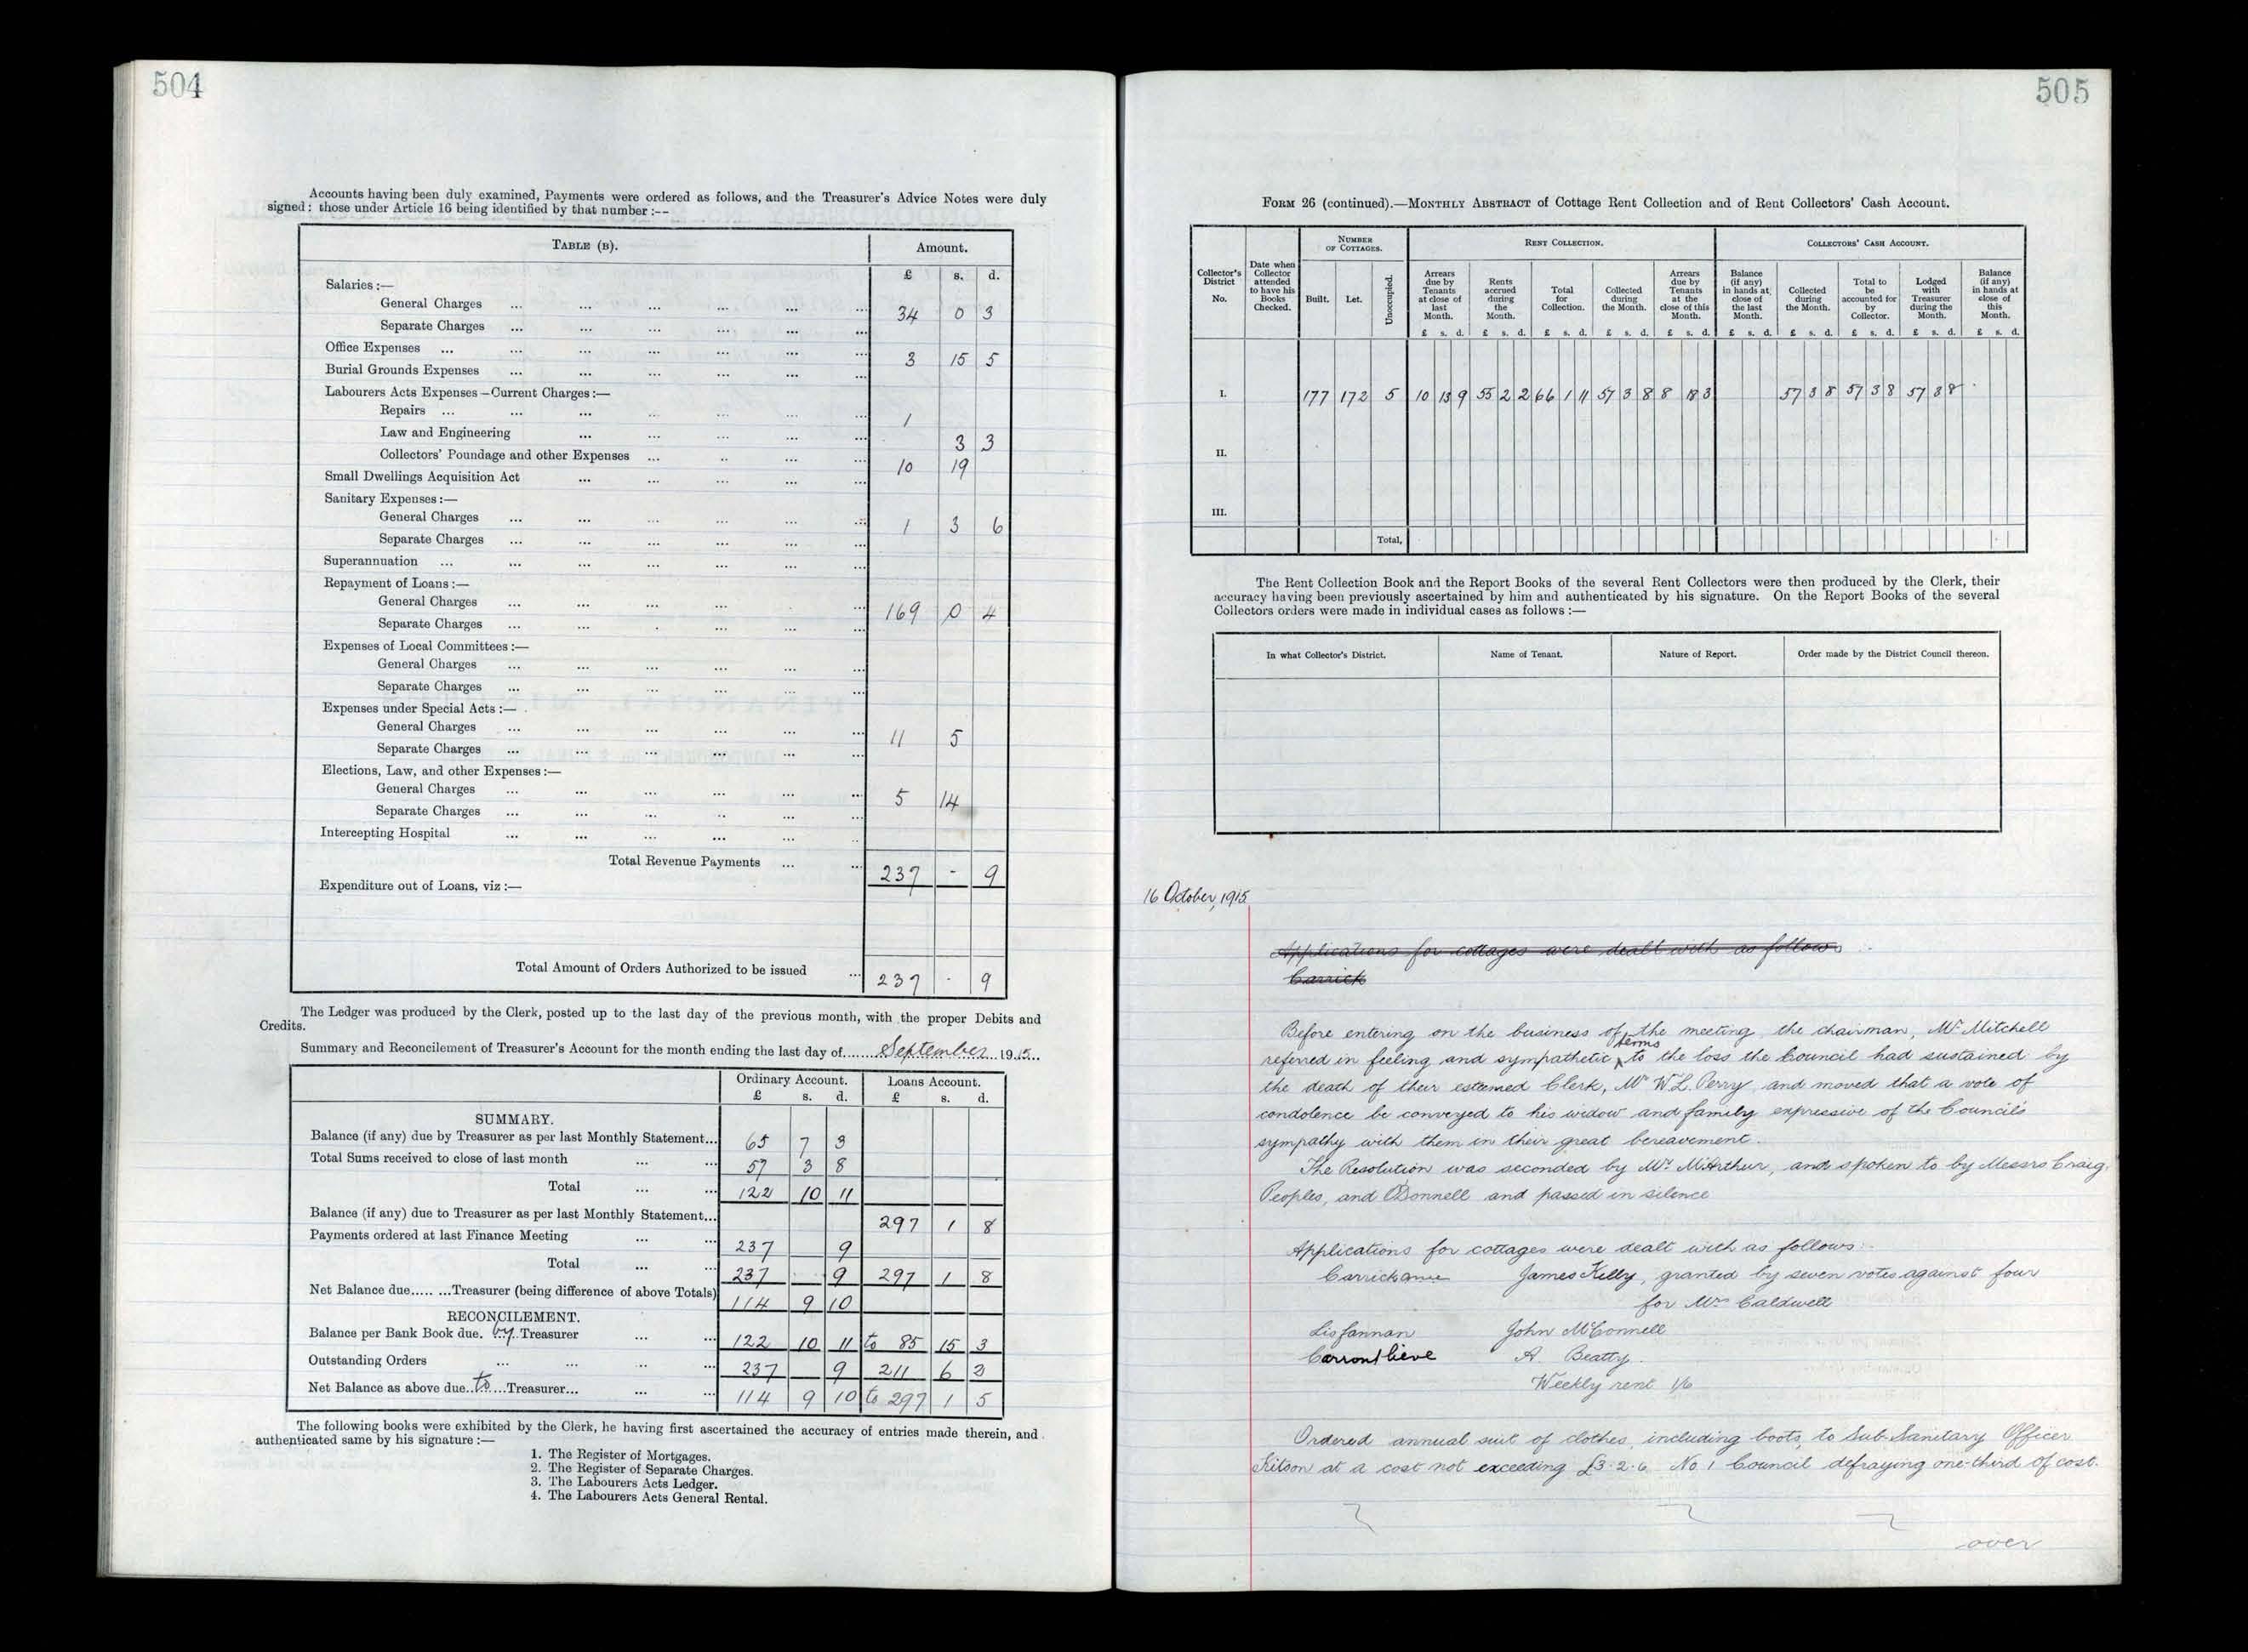 504
Accounts having been duly examined, Payments were ordered as follows, and the Treasurer's Advice Notes were duly
signed: those under Article 16 being identified by that number :--
TABLE (B). Amount.
£ s. d.
Salaries :—
General Charges ... ... ... ... ... ... 34 0 3
Separate Charges ... ... ... ... ... ...
Office Expenses ... ... ... ... ... ... ... 3 15 5
Burial Grounds Expenses ... ... ... ... ... ...
Labourers Acts Expenses—Current Charges :—
Repairs ... ... ... ... ... ... ... 1
Law and Engineering ... ... ... ... ... 3 3
Collectors' Poundage and other Expenses ... .. ... ... 10 19
Small Dwellings Acquisition Act ... ... ... ... ...
Sanitary Expenses :—
General Charges ... ... ... ... ... ... 1 3 6
Separate Charges ... ... ... ... ... ...
Superannuation ... ... ... ... ... ...
Repayment of Loans :—
General Charges ... ... ... ... . ... 169 0 4
Separate Charges ... ... . ... ... ...
Expenses of Local Committees :—
General Charges ... ... ... ... ... ...
Separate Charges ... ... ... ... ... ...
Expenses under Special Acts :—
General Charges ... ... ... ... ... ... 11 5
Separate Charges ... ... ... ... ... ...
Elections, Law, and other Expenses :—
General Charges ... ... ... ... ... ... 5 14
Separate Charges ... ... ... .. ... ...
Intercepting Hospital ... ... ... ... ... ..
Total Revenue Payments ... ... 237 - 9
Expenditure out of Loans, viz :—
Total Amount of Orders Authorized to be issued ... 237 - 9
The Ledger was produced by the Clerk, posted up to the last day of the previous month, with the proper Debits and
Credits.
Summary and Reconcilement of Treasurer's Account for the month ending the last day of........September...1915..
Ordinary Account. Loans Account.
£ s. d. £ s. d.
SUMMARY.
Balance (if any) due by Treasurer as per last Monthly Statement... 65 7 3
Total Sums received to close of last month ... ... 57 3 8
Total ... ... 122 10 11
Balance (if any) due to Treasurer as per last Monthly Statement... 297 1 8
Payments ordered at last Finance Meeting ... ... 237 9
Total ... ... 237 - 9 297 1 8
Net Balance due..... ...Treasurer (being difference of above Totals) 114 9 10
RECONCILEMENT.
Balance per Bank Book due. by Treasurer ... ... 122 10 11 to 85 15 3
Outstanding Orders ... ... .. ... 237 9 211 6 2
Net Balance as above due..to...Treasurer... ... ... 114 9 10 to 297 1 5
The following books were exhibited by the Clerk, he having first ascertained the accuracy of entries made therein, and
authenticated same by his signature :—
1. The Register of Mortgages.
2. The Register of Separate Charges.
3. The Labourers Acts Ledger.
4. The Labourers Acts General Rental.
505
FORM 26 (continued).—MONTHLY ABSTRACT of Cottage Rent Collection and of Rent Collectors' Cash Account.
Collector's District No.
Date when Collector attended to have his Books Checked.
NUMBER OF COTTAGES.
Built. Let. Unoccupied.
RENT COLLECTION.
Arrears due by Tenants at close of last Month. £ s. d.
Rents accrued during the Month. £ s. d.
Total for Collection. £ s. d.
Collected during the Month. £ s. d.
Arrears due by Tenants at the close of this Month. £ s. d.
COLLECTORS' CASH ACCOUNT.
Balance (if any) in hands at close of the last Month. £ s. d.
Collected during the Month. £ s. d.
Total to be accounted for by Collector. £ s. d.
Lodged with Treasurer during the Month. £ s. d.
Balance (if any) in hands at close of this Month. £ s. d.
I. 177 172 5 10 19 9 55 2 2 66 1 11 57 3 8 8 18 3 57 3 8 57 3 8 57 3 8
II.
III.
Total,
The Rent Collection Book and the Report Books of the several Rent Collectors were then produced by the Clerk, their
accuracy having been previously ascertained by him and authenticated by his signature. On the Report Books of the several
Collectors orders were made in individual cases as follows :—
In what Collector's District. Name of Tenant. Nature of Report. Order made by the District Council thereon.
16 October, 1915
Applications for cottages were dealt with as follows
Carrick
Before entering on the business of the meeting the chairman, Mr. Mitchell
referred in feeling and sympathetic terms to the loss the Council had sustained by
the death of their esteemed Clerk, Mr W.L. Perry and moved that a vote of
condolence be conveyed to his widow and family expressive of the Council's
sympathy with them in their great bereavement.
The Resolution was seconded by Mr. McArthur, and spoken to by Messrs Craig,
Peoples, and O'Donnell and passed in silence
Applications for cottages were dealt with as follows:-
James Kelly, granted by seven votes against four
for Mr Caldwell
Lisfannan John McConnell
A. Beatty.
Weekly rent 1/6
Ordered annual suit of clothes, including boots, to Sub-Sanitary Officer
at a cost not exceeding £3.2.6 No 1 Council defraying one-third of cost.
over